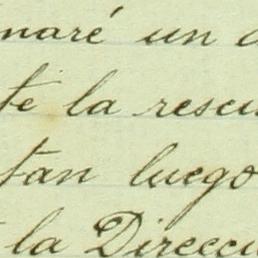 naré un
te la rescu
tan luego
la Direcci